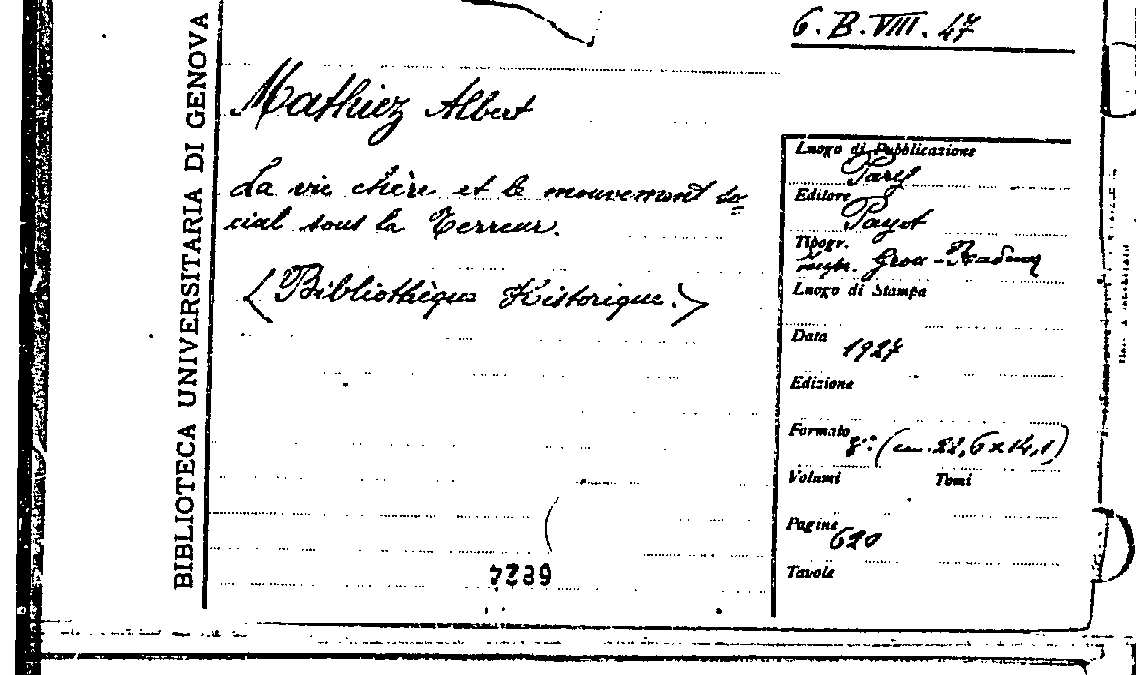 6.B.VIII.47
BIBLIOTECA UNIVERSITARIA DI GENOVA
Mathiez Albert
La vie chère et le mouvement so=
cial sous la Terreur.
(Bibliothèque Historique.)
Luogo di Pubblicazione
Paris
Editore
Payot
Tipogr.
Luogo di Stampa
Data
1927
Edizione
Formato
8° (cm. 22,6x14,1)
Volumi Tomi
Pagine
620
Tavole